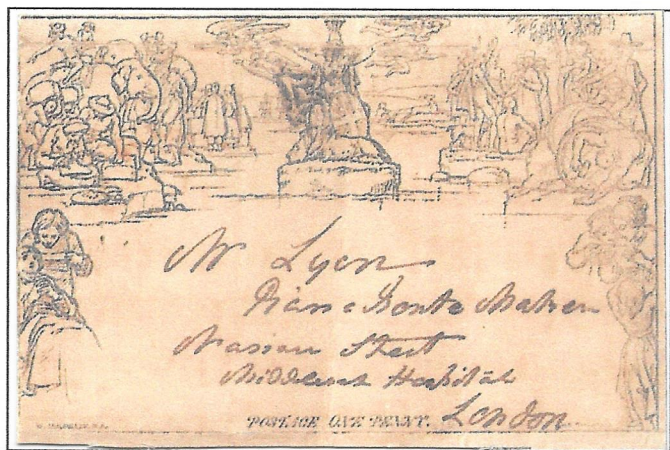 Mr Lyon
Piano Forte Maker
Nassau Street
Middlesex Hospital
London
POSTAGE ONE PENNY.